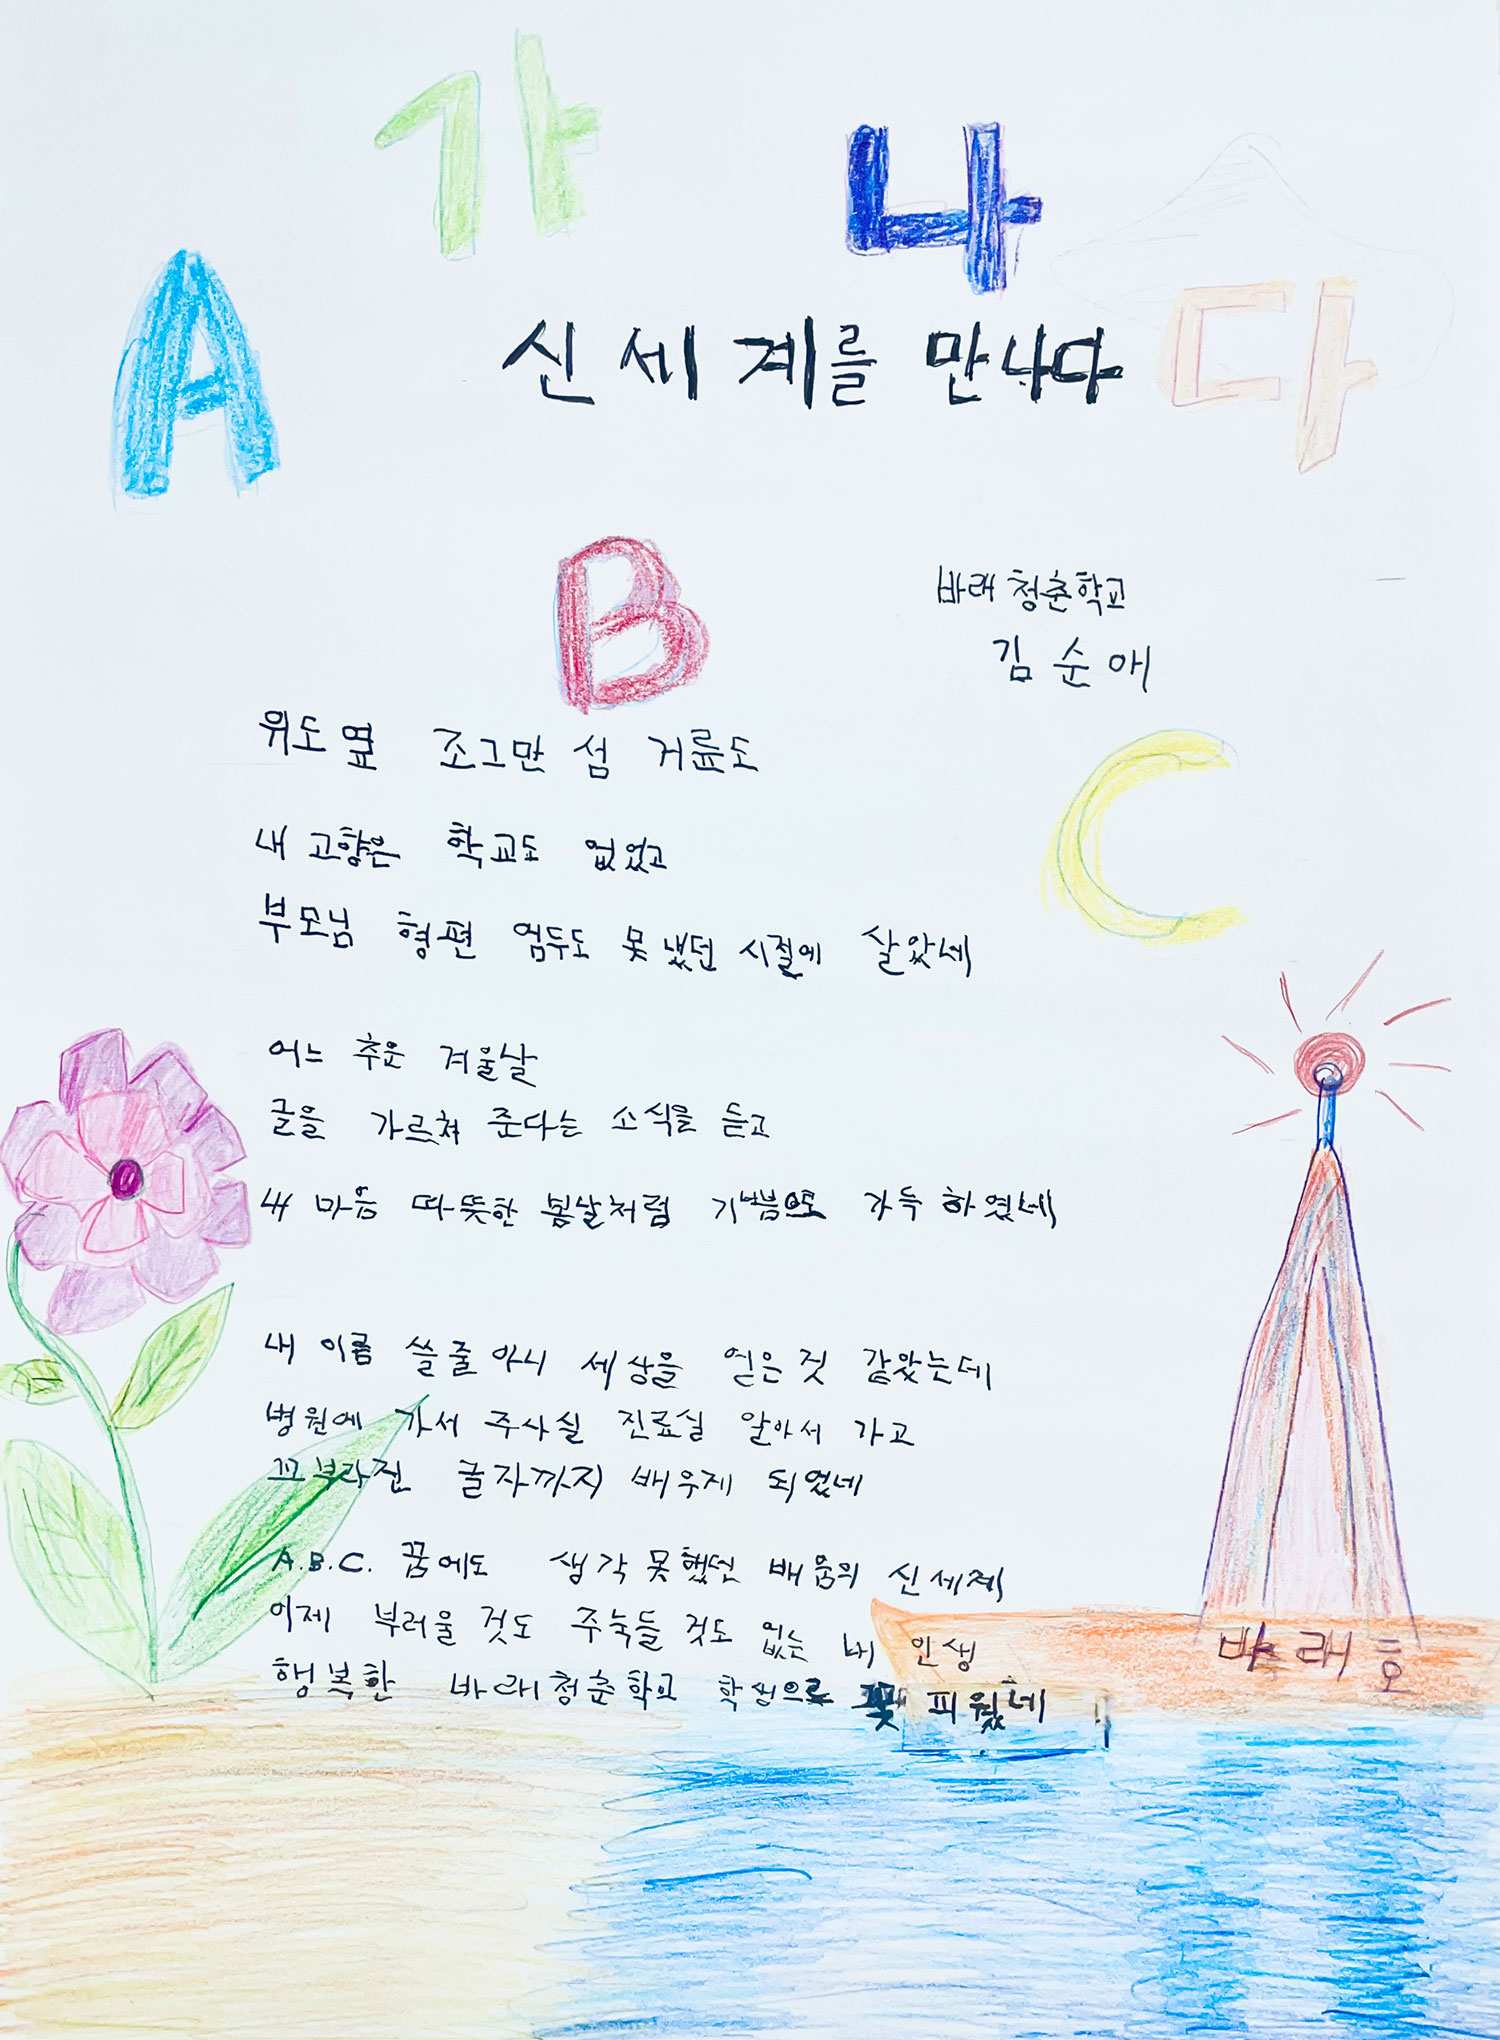 가 나 다
A
신세계를 만나다
B
바래 청춘학교
김순애
C
위도 옆 조그만 섬 거륜도
내 고향은 학교도 없었고
부모님 형편 엄두도 못 냈던 시절에 살았네
어느 추운 겨울날
글을 가르쳐 준다는 소식을 듣고
내 마음 따뜻한 봄날처럼 기쁨으로 가득 하였네
내 이름 쓸줄 아니 세상을 얻은 것 같았는데
병원에 가서 주사실 진료실 알아서 가고
꼬부라진 글자까지 배우게 되었네
A.B.C. 꿈에도 생각 못했던 배움의 신세계
이제 부러울 것도 주눅들 것도 없는 내 인생
행복한 바래청춘학교 학생으로 꽃 피웠네
바래호